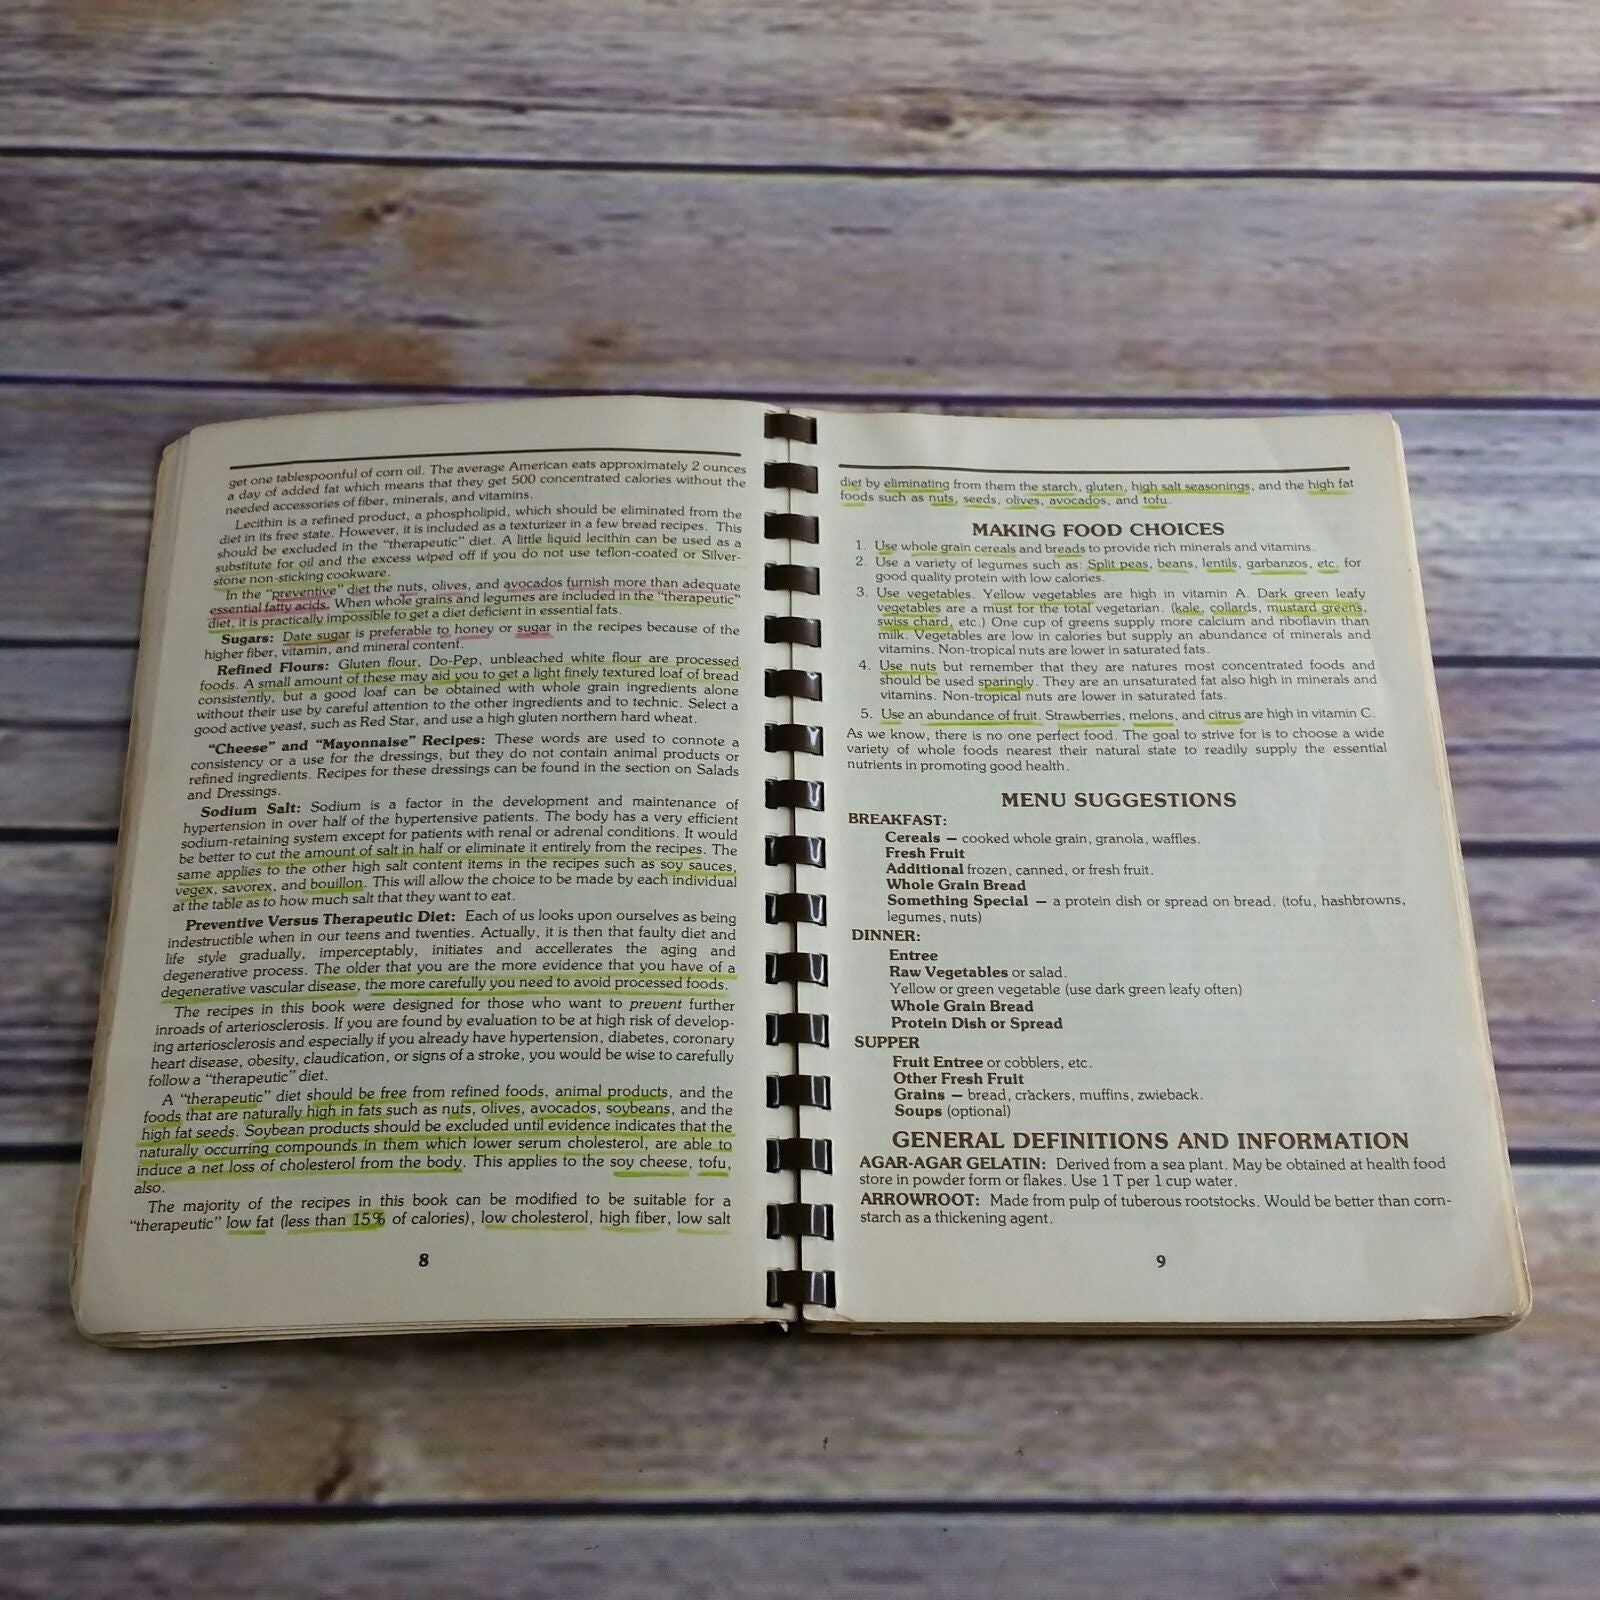 get one tablespoonful of corn oil. The average American eats approximately 2 ounces
a day of added fat which means that they get 500 concentrated calories without the
needed accessories of fiber, minerals, and vitamins.
Lecithin is a refined product, a phospholipid, which should be eliminated from the
diet in its free state. However, it is included as a texturizer in a few bread recipes. This
should be excluded in the "therapeutic" diet. A little liquid lecithin can be used as a
substitute for oil and the excess wiped off if you do not use teflon-coated or Silver-
stone non-sticking cookware.
In the "preventive" diet the nuts, olives, and avocados furnish more than adequate
essential fatty acids. When whole grains and legumes are included in the "therapeutic"
diet, it is practically impossible to get a diet deficient in essential fats.
Sugars: Date sugar is preferable to honey or sugar in the recipes because of the
higher fiber, vitamin, and mineral content.
Refined Flours: Gluten flour, Do-Pep, unbleached white flour are processed
foods. A small amount of these may aid you to get a light finely textured loaf of bread
consistently, but a good loaf can be obtained with whole grain ingredients alone
without their use by careful attention to the other ingredients and to technic. Select a
good active yeast, such as Red Star, and use a high gluten northern hard wheat.
"Cheese" and "Mayonnaise" Recipes: These words are used to connote a
consistency or a use for the dressings, but they do not contain animal products or
refined ingredients. Recipes for these dressings can be found in the section on Salads
and Dressings.
Sodium Salt: Sodium is a factor in the development and maintenance of
hypertension in over half of the hypertensive patients. The body has a very efficient
sodium-retaining system except for patients with renal or adrenal conditions. It would
be better to cut the amount of salt in half or eliminate it entirely from the recipes. The
same applies to the other high salt content items in the recipes such as soy sauces,
vegex, savorex, and bouillon. This will allow the choice to be made by each individual
at the table as to how much salt that they want to eat.
Preventive Versus Therapeutic Diet: Each of us looks upon ourselves as being
indestructible when in our teens and twenties. Actually, it is then that faulty diet and
life style gradually, imperceptably, initiates and accellerates the aging and
degenerative process. The older that you are the more evidence that you have of a
degenerative vascular disease, the more carefully you need to avoid processed foods.
The recipes in this book were designed for those who want to prevent further
inroads of arteriosclerosis. If you are found by evaluation to be at high risk of develop-
ing arteriosclerosis and especially if you already have hypertension, diabetes, coronary
heart disease, obesity, claudication, or signs of a stroke, you would be wise to carefully
follow a "therapeutic" diet.
A "therapeutic" diet should be free from refined foods, animal products, and the
foods that are naturally high in fats such as nuts, olives, avocados, soybeans, and the
high fat seeds. Soybean products should be excluded until evidence indicates that the
naturally occurring compounds in them which lower serum cholesterol, are able to
induce a net loss of cholesterol from the body. This applies to the soy cheese, tofu,
also.
The majority of the recipes in this book can be modified to be suitable for a
"therapeutic" low fat (less than 15% of calories), low cholesterol, high fiber, low salt
8
diet by eliminating from them the starch, gluten, high salt seasonings, and the high fat
foods such as nuts, seeds, olives, avocados, and tofu.
MAKING FOOD CHOICES
1. Use whole grain cereals and breads to provide rich minerals and vitamins.
2. Use a variety of legumes such as: Split peas, beans, lentils, garbanzos, etc. for
good quality protein with low calories.
3. Use vegetables. Yellow vegetables are high in vitamin A. Dark green leafy
vegetables are a must for the total vegetarian. (kale, collards, mustard greens,
swiss chard, etc.) One cup of greens supply more calcium and riboflavin than
milk. Vegetables are low in calories but supply an abundance of minerals and
vitamins. Non-tropical nuts are lower in saturated fats.
4. Use nuts but remember that they are natures most concentrated foods and
should be used sparingly. They are an unsaturated fat also high in minerals and
vitamins. Non-tropical nuts are lower in saturated fats.
5. Use an abundance of fruit. Strawberries, melons, and citrus are high in vitamin C.
As we know, there is no one perfect food. The goal to strive for is to choose a wide
variety of whole foods nearest their natural state to readily supply the essential
nutrients in promoting good health.
MENU SUGGESTIONS
BREAKFAST:
Cereals — cooked whole grain, granola, waffles.
Fresh Fruit
Additional frozen, canned, or fresh fruit.
Whole Grain Bread
Something Special — a protein dish or spread on bread. (tofu, hashbrowns,
legumes, nuts)
DINNER:
Entree
Raw Vegetables or salad.
Yellow or green vegetable (use dark green leafy often)
Whole Grain Bread
Protein Dish or Spread
SUPPER
Fruit Entree or cobblers, etc.
Other Fresh Fruit
Grains — bread, crackers, muffins, zwieback.
Soups (optional)
GENERAL DEFINITIONS AND INFORMATION
AGAR-AGAR GELATIN: Derived from a sea plant. May be obtained at health food
store in powder form or flakes. Use 1 T per 1 cup water.
ARROWROOT: Made from pulp of tuberous rootstocks. Would be better than corn-
starch as a thickening agent.
9